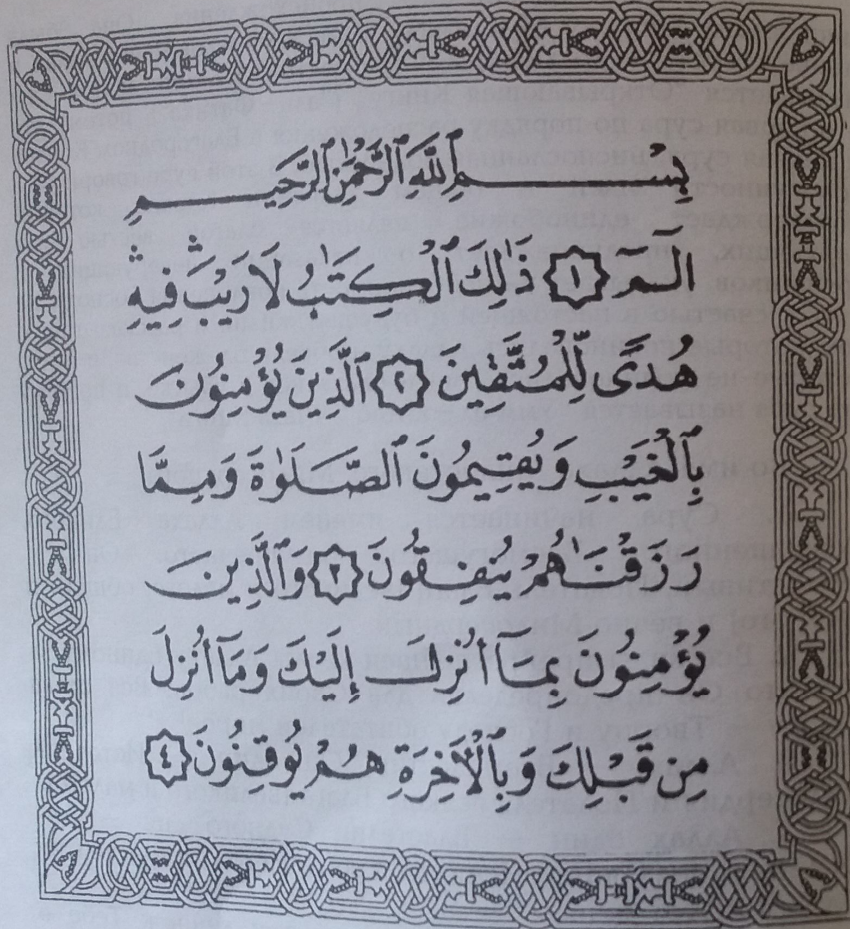 بِسْمِ ٱللَّهِ ٱلرَّحْمَٰنِ ٱلرَّحِيمِ
الٓمٓ ١ ذَٰلِكَ ٱلْكِتَٰبُ لَا رَيْبَ ۛ فِيهِ ۛ
هُدًى لِّلْمُتَّقِينَ ٢ ٱلَّذِينَ يُؤْمِنُونَ
بِٱلْغَيْبِ وَيُقِيمُونَ ٱلصَّلَوٰةَ وَمِمَّا
رَزَقْنَٰهُمْ يُنفِقُونَ ٣ وَٱلَّذِينَ
يُؤْمِنُونَ بِمَآ أُنزِلَ إِلَيْكَ وَمَآ أُنزِلَ
مِن قَبْلِكَ وَبِٱلْأَخِرَةِ هُمْ يُوقِنُونَ ٤